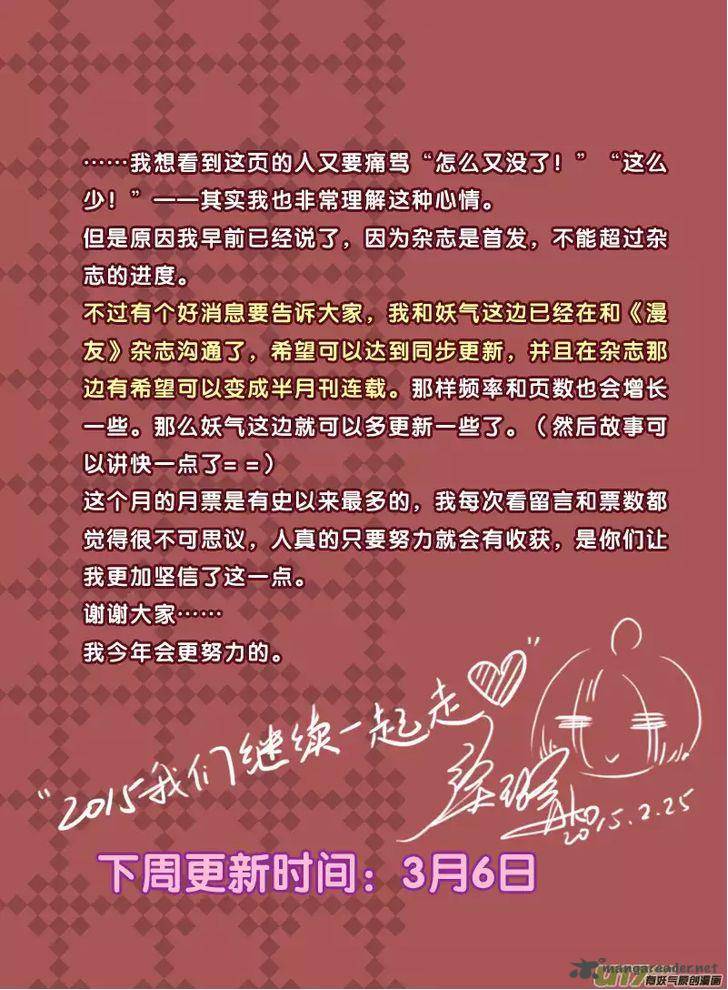 ……我想看到这页的人又要痛骂“怎么又没了！”“这么
少！”——其实我也非常理解这种心情。
但是原因我早前已经说了，因为杂志是首发，不能超过杂
志的进度。
不过有个好消息要告诉大家，我和妖气这边已经在和《漫
友》杂志沟通了，希望可以达到同步更新，并且在杂志那
边有希望可以变成半月刊连载。那样频率和页数也会增长
一些。那么妖气这边就可以多更新一些了。（然后故事可
以讲快一点了= =）
这个月的月票是有史以来最多的，我每次看留言和票数都
觉得很不可思议，人真的只要努力就会有收获，是你们让
我更加坚信了这一点。
谢谢大家……
我今年会更努力的。
“2015我们继续一起走”
Ako
2015.2.25
下周更新时间：3月6日
mangareader.net
U17
有妖气原创漫画